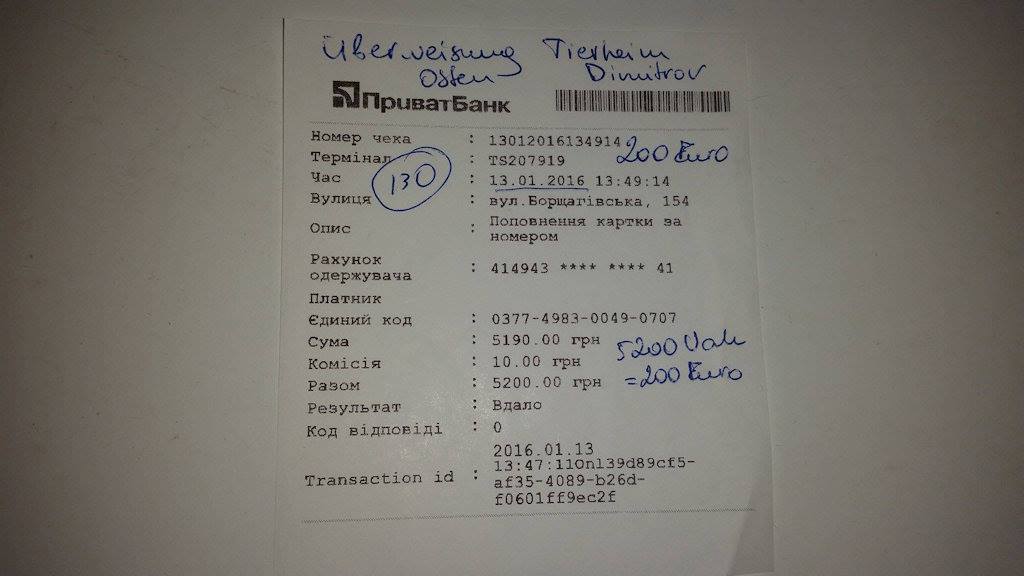 Überweisung Tierheim
Osten Dimitrov
ПриватБанк
Номер чека : 13012016134914 200 Euro
Термінал : TS207919
130
Час : 13.01.2016 13:49:14
Вулиця : вул.Борщагівська, 154
Опис : Поповнення картки за
номером
Рахунок
одержувача : 414943 **** **** 41
Платник
Єдиний код : 0377-4983-0049-0707
Сума : 5190.00 грн 5200 Uah
Комісія : 10.00 грн
Разом : 5200.00 грн = 200 Euro
Результат : Вдало
Код відповіді : 0
2016.01.13
Transaction id : 13:47:110n139d89cf5-
af35-4089-b26d-
f0601ff9ec2f